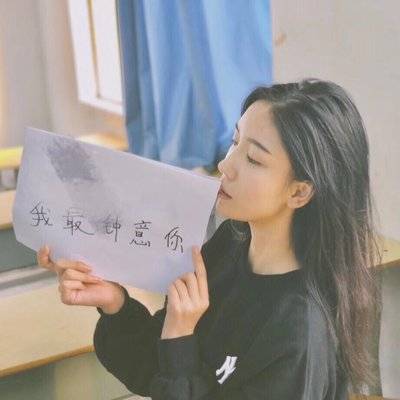 我最钟意你